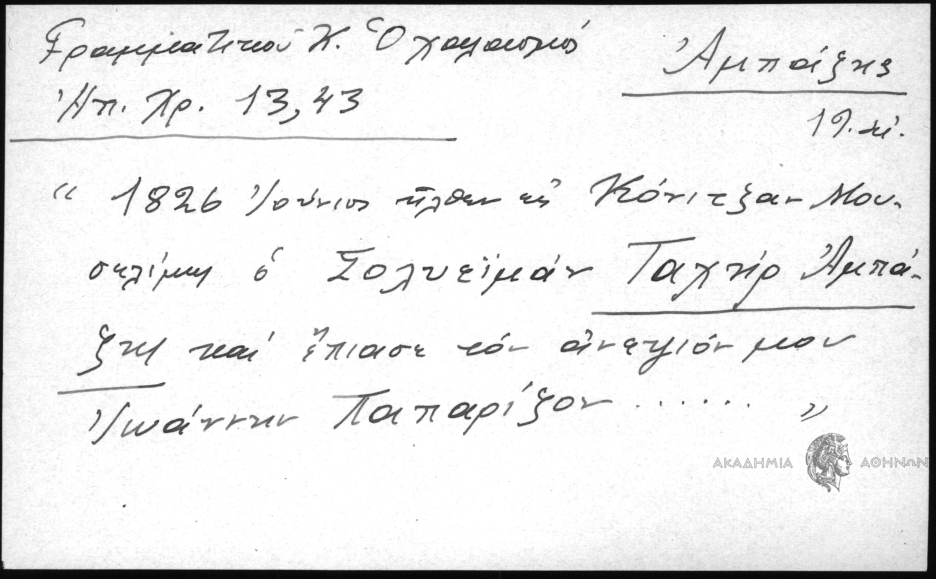 Γραμματικού Κ. Ὁ χαλασμός
Ἀμπάζης
Ἠπ. Χρ. 13, 43
19. αἰ.
“ 1826 Ἰούνιος ἦλθεν εἰς Κόνιτζαν Μου-
σελίμης ὁ Σολυεϊμάν Ταχήρ Ἀμπά-
ζης καί ἔπιασε τόν ἀνεψιόν μου
Ἰωάννην Παπαρίζον ...... ”
ΑΚΑΔΗΜΙΑ ΑΘΗΝΩΝ